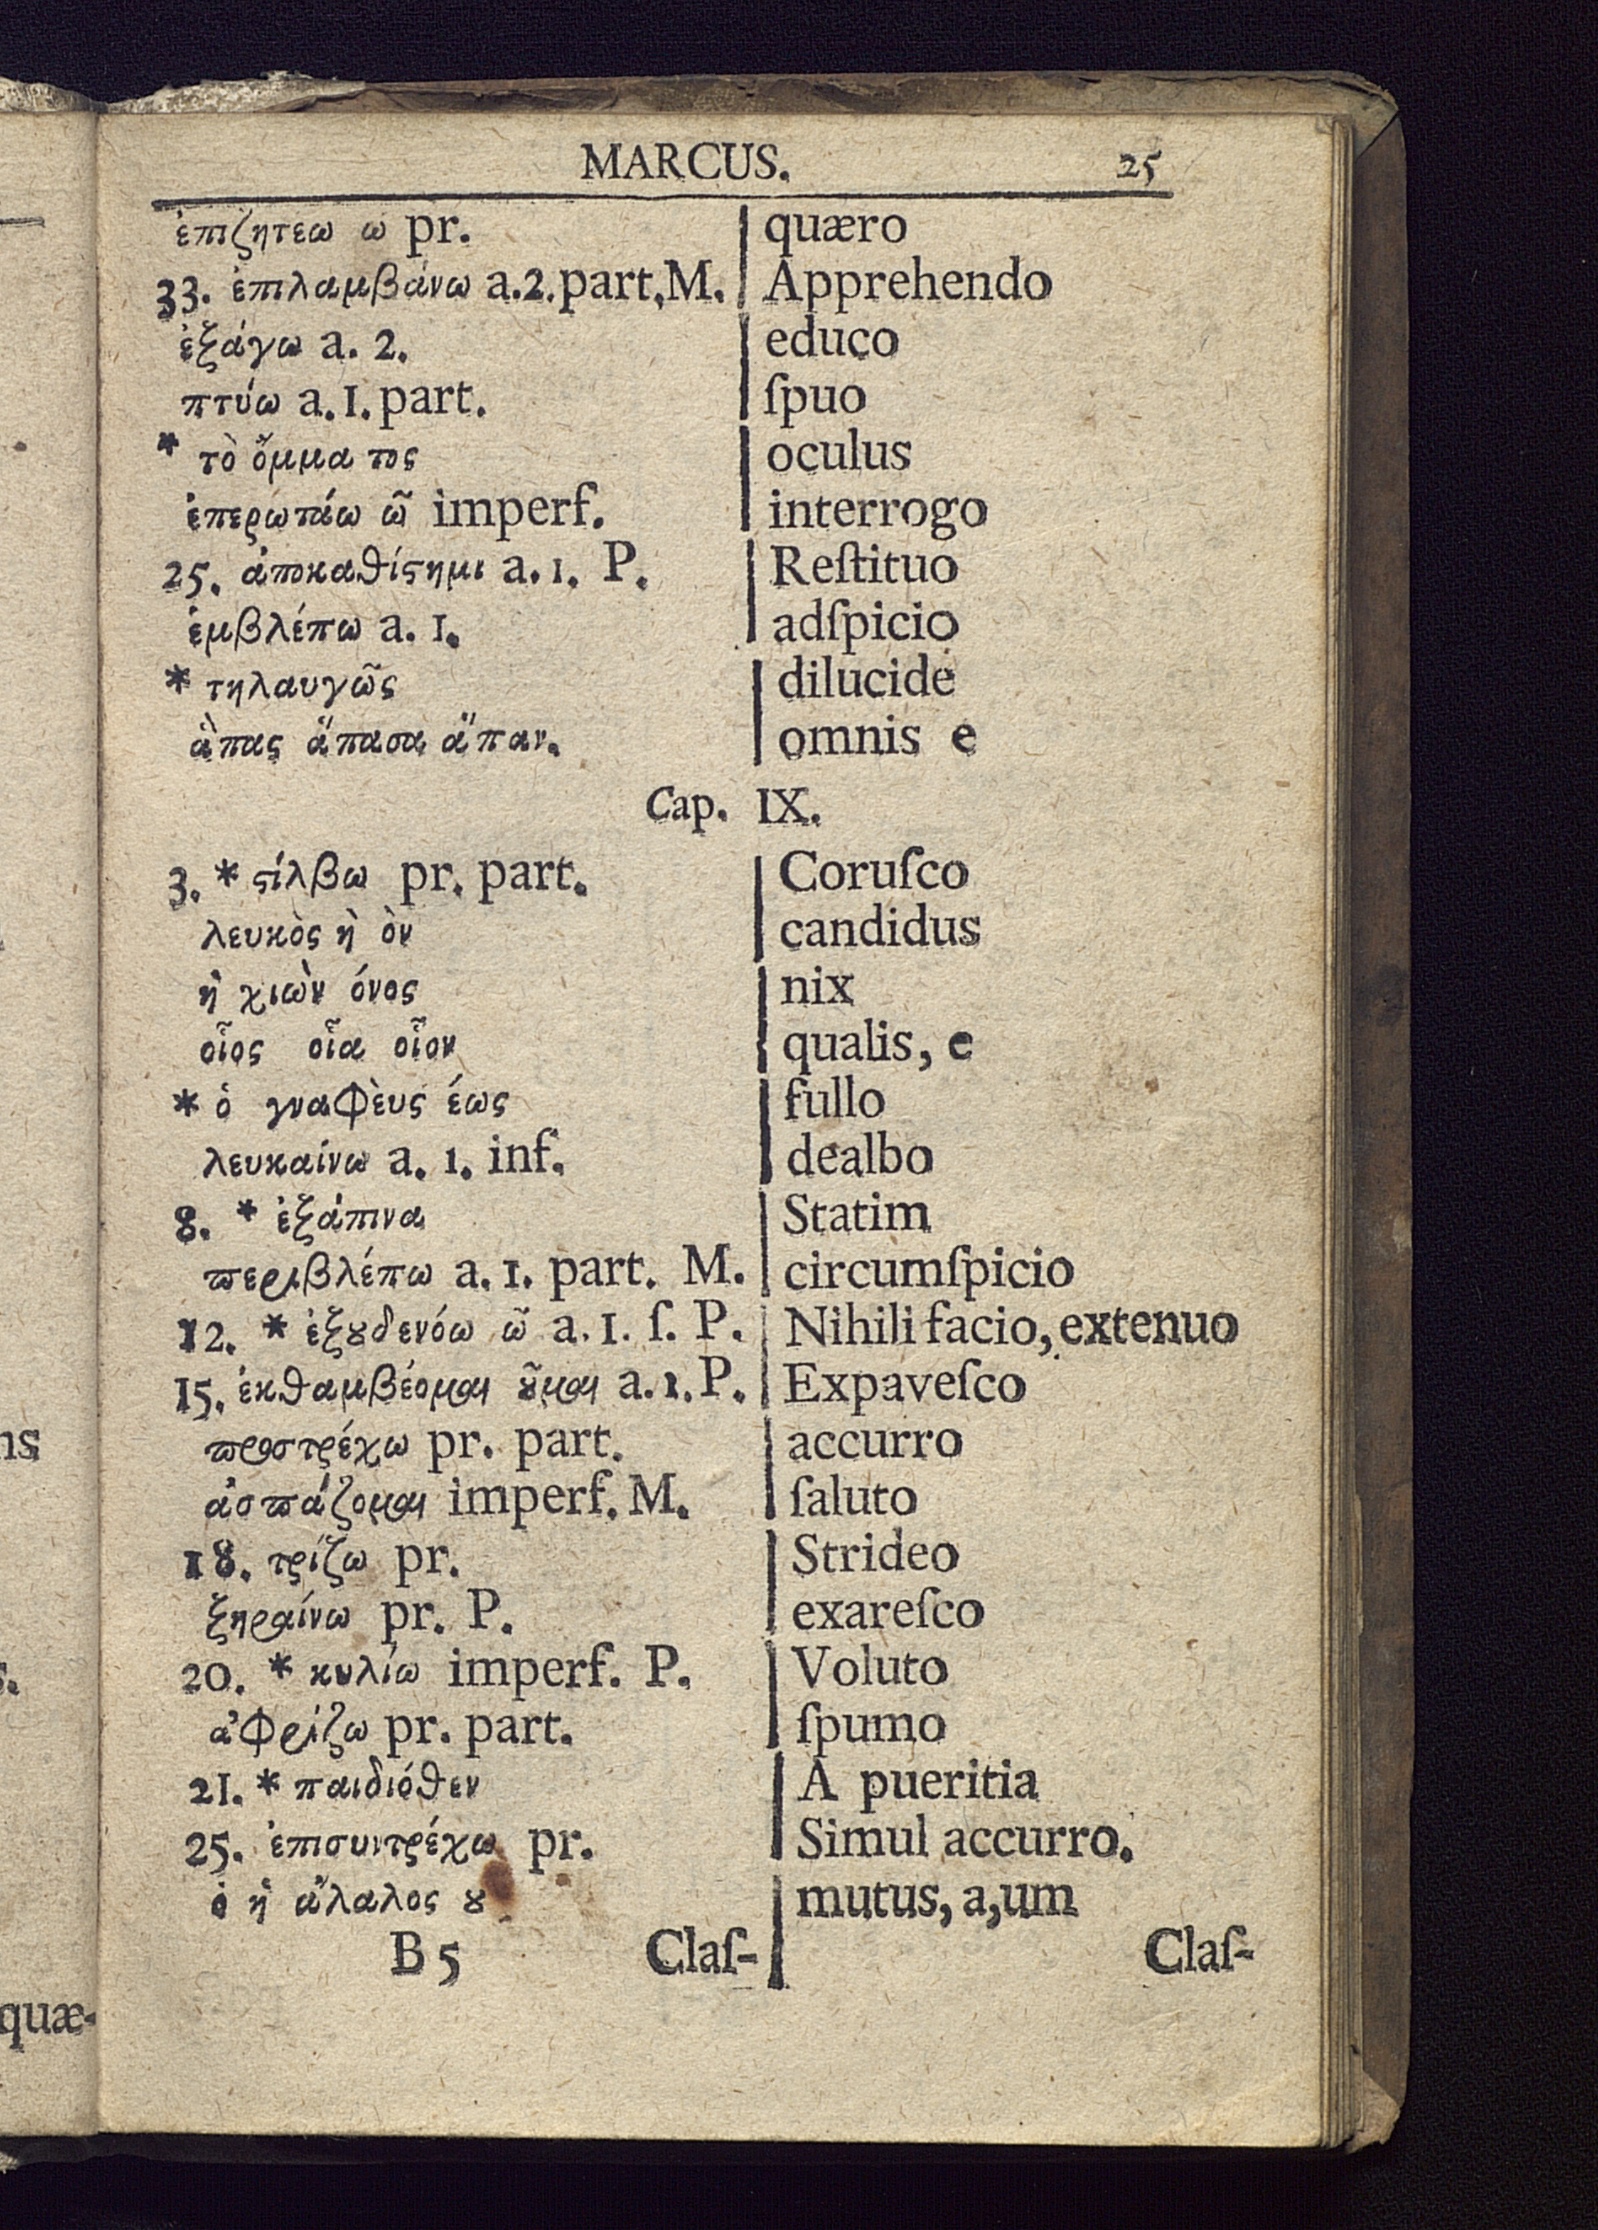 MARCUS. 25
ἐπιζητεω ω pr. quæro
33. ἐπιλαμβάνω a.2.part,M. Apprehendo
ἐξάγω a. 2. educo
πτύω a.1.part. ſpuo
* τὸ ὄμμα τος oculus
ἐπερωτάω ῶ imperf. interrogo
25. ἀποκαθίϛημι a.1. P. Reſtituo
ἐμβλέπω a. 1. adſpicio
* τηλαυγῶς dilucide
ἅπας ἅπασα ἅπαν. omnis e
Cap. IX.
3. * ϛίλβω pr. part. Coruſco
λευκὸς ὴ ὸν candidus
ἡ χιὼν όνος nix
οἷος οἷα οἷον qualis, e
* ὁ γναφὲυς έως fullo
λευκαίνω a. 1. inf. dealbo
8. * ἐξάπινα Statim
ϖεριβλέπω a. 1. part. M. circumſpicio
12. * ἐξȣδενόω ῶ a. 1. ſ. P. Nihili facio, extenuo
15. ἐκθαμβέομαι ȣ͂μαι a.1.P. Expaveſco
ϖροστρέχω pr. part. accurro
ἀσϖάζομαι imperf. M. ſaluto
18. τρίζω pr. Strideo
ξηραίνω pr. P. exareſco
20. * κυλίω imperf. P. Voluto
ἀφρίζω pr. part. ſpumo
21. * παιδιόθεν A pueritia
25. ἐπισυντρέχω pr. Simul accurro.
ὁ ἡ ἄλαλος ȣ mutus, a,um
B 5 Claſ- Claſ-
ns
s.
quæ-